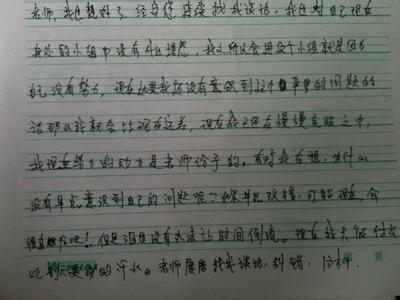 老师,我也想好了,经过您 连续找我谈话,我也对自己现在
所处的小组中没有什么理怨,我之所以会进这个小组就是因为
自己没有努力,现在如果我还没有意识到这个事事的问题的
话那么我就会比现在还差,现在我正在慢慢克服之中,
我现在努力的动力是老师给予的,有时我在想,为什么
没有早点意识到自己的问题呢?如果早点改错,可能现在会
很 吧!但是酒也没有办法让时间倒流。现在我只能付出
比别人更多的汗水。老师 找我谈话,纠错,分析。
第 页